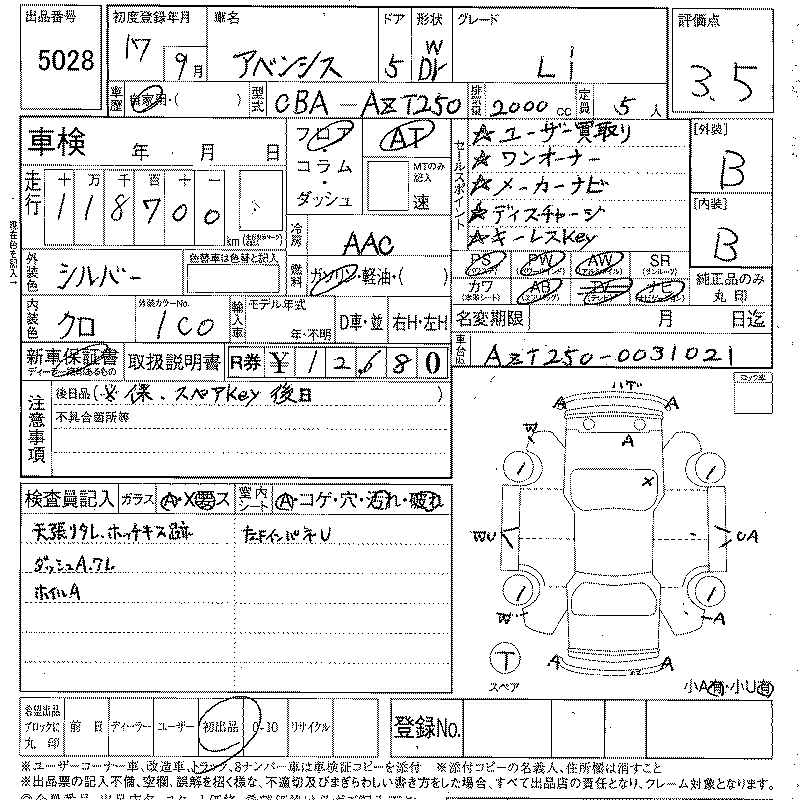 出品番号
5028
初度登録年月
17
9月
車名
アベンシス
ドア
5
形状
W
Dr
グレード
Li
評価点
3.5
車歴
自家用・( )
型式
CBA-AZT250
排気量
2000 cc
定員
5 人
車検
年 月 日
フロア・コラム・ダッシュ
AT
MTのみ記入
速
セールスポイント
☆ユーザー買取り
☆ワンオーナー
☆メーカーナビ
☆ディスチャージ
☆キーレスKey
[外装]
B
[内装]
B
走行
十 万 千 百 十 一
118700
km
冷房
AAC
燃料
ガソリン・軽油・( )
PS PW AW SR
カワ AB TV ナビ
純正品のみ
丸 印
外装色
シルバー
色替車は色替と記入
内装色
クロ
外装カラーNo.
1C0
輸入車
モデル年式
年・不明
D車・並
右H・左H
名変期限 月 日迄
新車保証書
取扱説明書
R券 ¥ 12,680
車台No.
AZT250-0031021
注意事項
後日品(※保、スペアkey 後日 )
不具合箇所等
検査員記入
ガラス
A・X・要ス
室内シート
A・コゲ・穴・汚れ・破れ
天張リタレ、ホッチキス跡
ダッシュA,フレ
ホイルA
ハゲ
A
A
A
W
X
WU
UA
W
A
A
A
T
スペア
小A有・小U有
希望出品
ブロックに
丸 印
前日
ディーラー
ユーザー
初出品
0-10
リサイクル
登録No.
※ユーザーコーナー車、改造車、トラック、8ナンバー車は車検証コピーを添付 ※添付コピーの名義人、住所欄は消すこと
※出品票の記入不備、空欄、誤解を招く様な、不適切及びまぎらわしい書き方をした場合、すべて出品店の責任となり、クレーム対象となります。